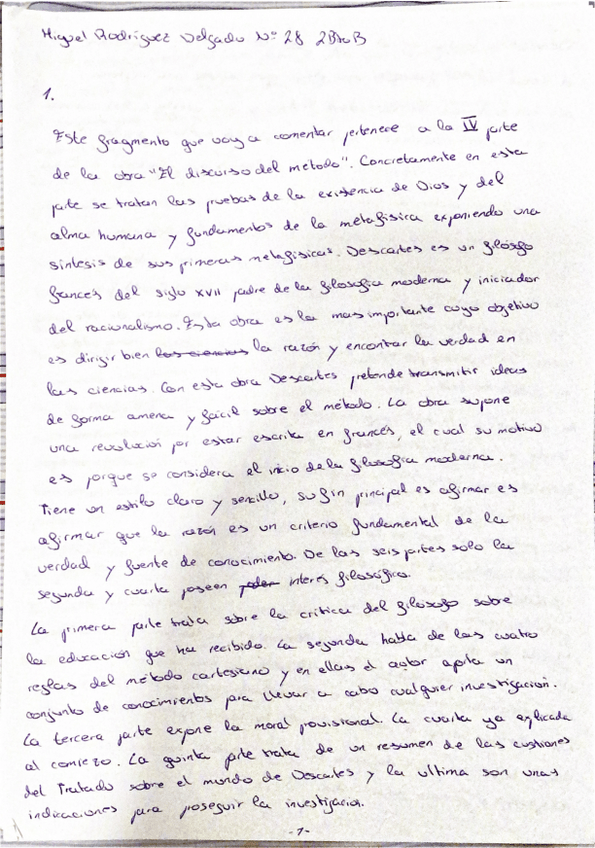 Miguel Rodríguez Delgado Nº 28 2BtoB
1.
Este fragmento que voy a comentar pertenece a la IV parte
de la obra "El discurso del método". Concretamente en esta
parte se tratan las pruebas de la existencia de Dios y del
alma humana y fundamentos de la metafísica exponiendo una
síntesis de sus primeras metafísicas. Descartes es un filósofo
francés del siglo XVII padre de la filosofía moderna y iniciador
del racionalismo. Esta obra es la mas importante cuyo objetivo
es dirigir bien las ciencias la razón y encontrar la verdad en
las ciencias. Con esta obra Descartes pretende transmitir ideas
de forma amena y fácil sobre el método. La obra supone
una revolución por estar escrita en francés, el cual su motivo
es porque se considera el inicio de la filosofía moderna.
Tiene un estilo claro y sencillo, su fin principal es afirmar es
afirmar que la razón es un criterio fundamental de la
verdad y fuente de conocimiento. De las seis partes solo la
segunda y cuarta poseen interés filosófico.
La primera parte trata sobre la crítica del filósofo sobre
la educación que ha recibido. La segunda habla de las cuatro
reglas del método cartesiano y en ellas el autor aporta un
conjunto de conocimientos para llevar a cabo cualquier investigación.
La tercera parte expone la moral provisional. La cuarta ya explicada
al comienzo. La quinta parte trata de un resumen de las cuestiones
del Tratado sobre el mundo de Descartes y la ultima son unas
indicaciones para proseguir la investigación.
-1-